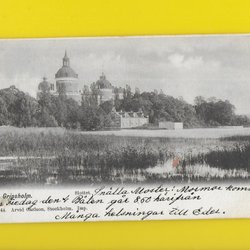 Slottet.
Gripsholm.
Snälla Moster! Mormor kom
fredag den 4 Båten går 850 härifrån
44. Arvid Carlson, Stockholm. Imp.
Många helsningar till Eder.